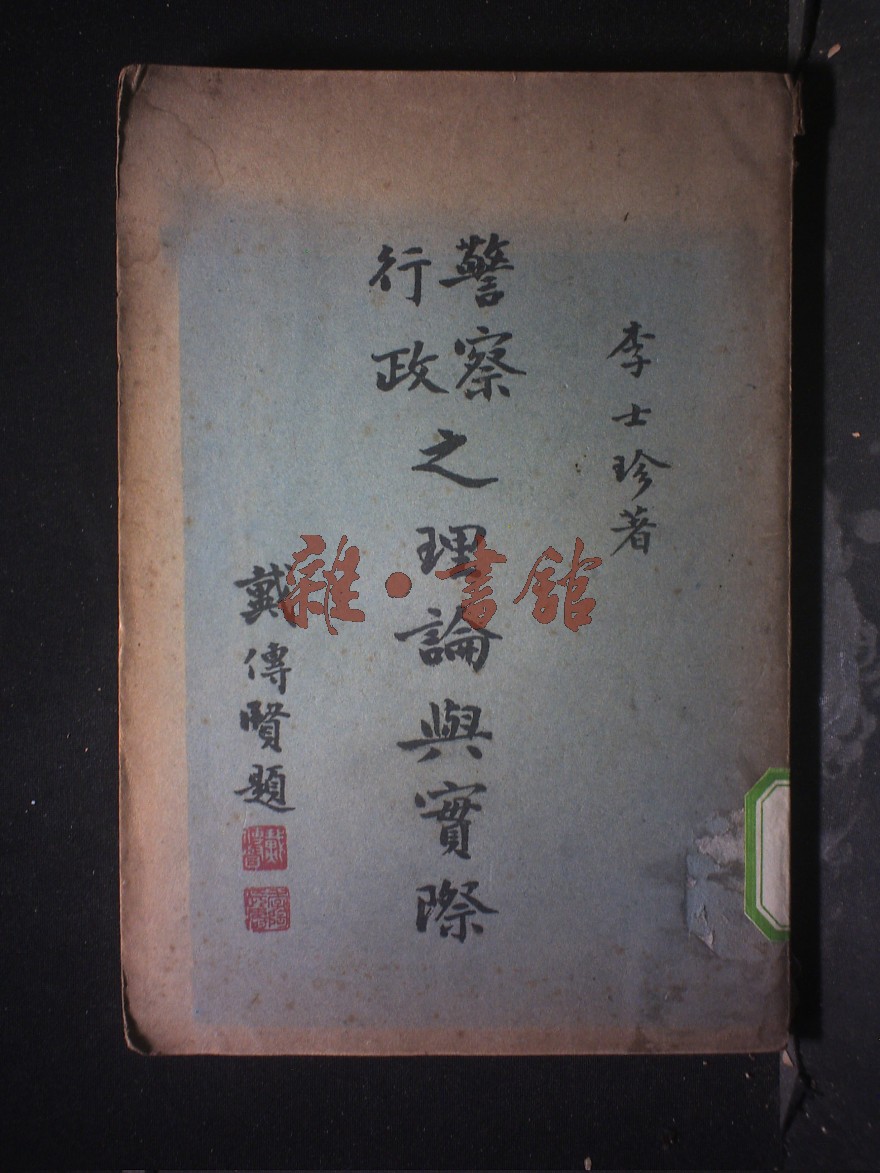 李士珍著
警察行政之理論與實際
戴傳賢題
戴傳賢
雜·書館